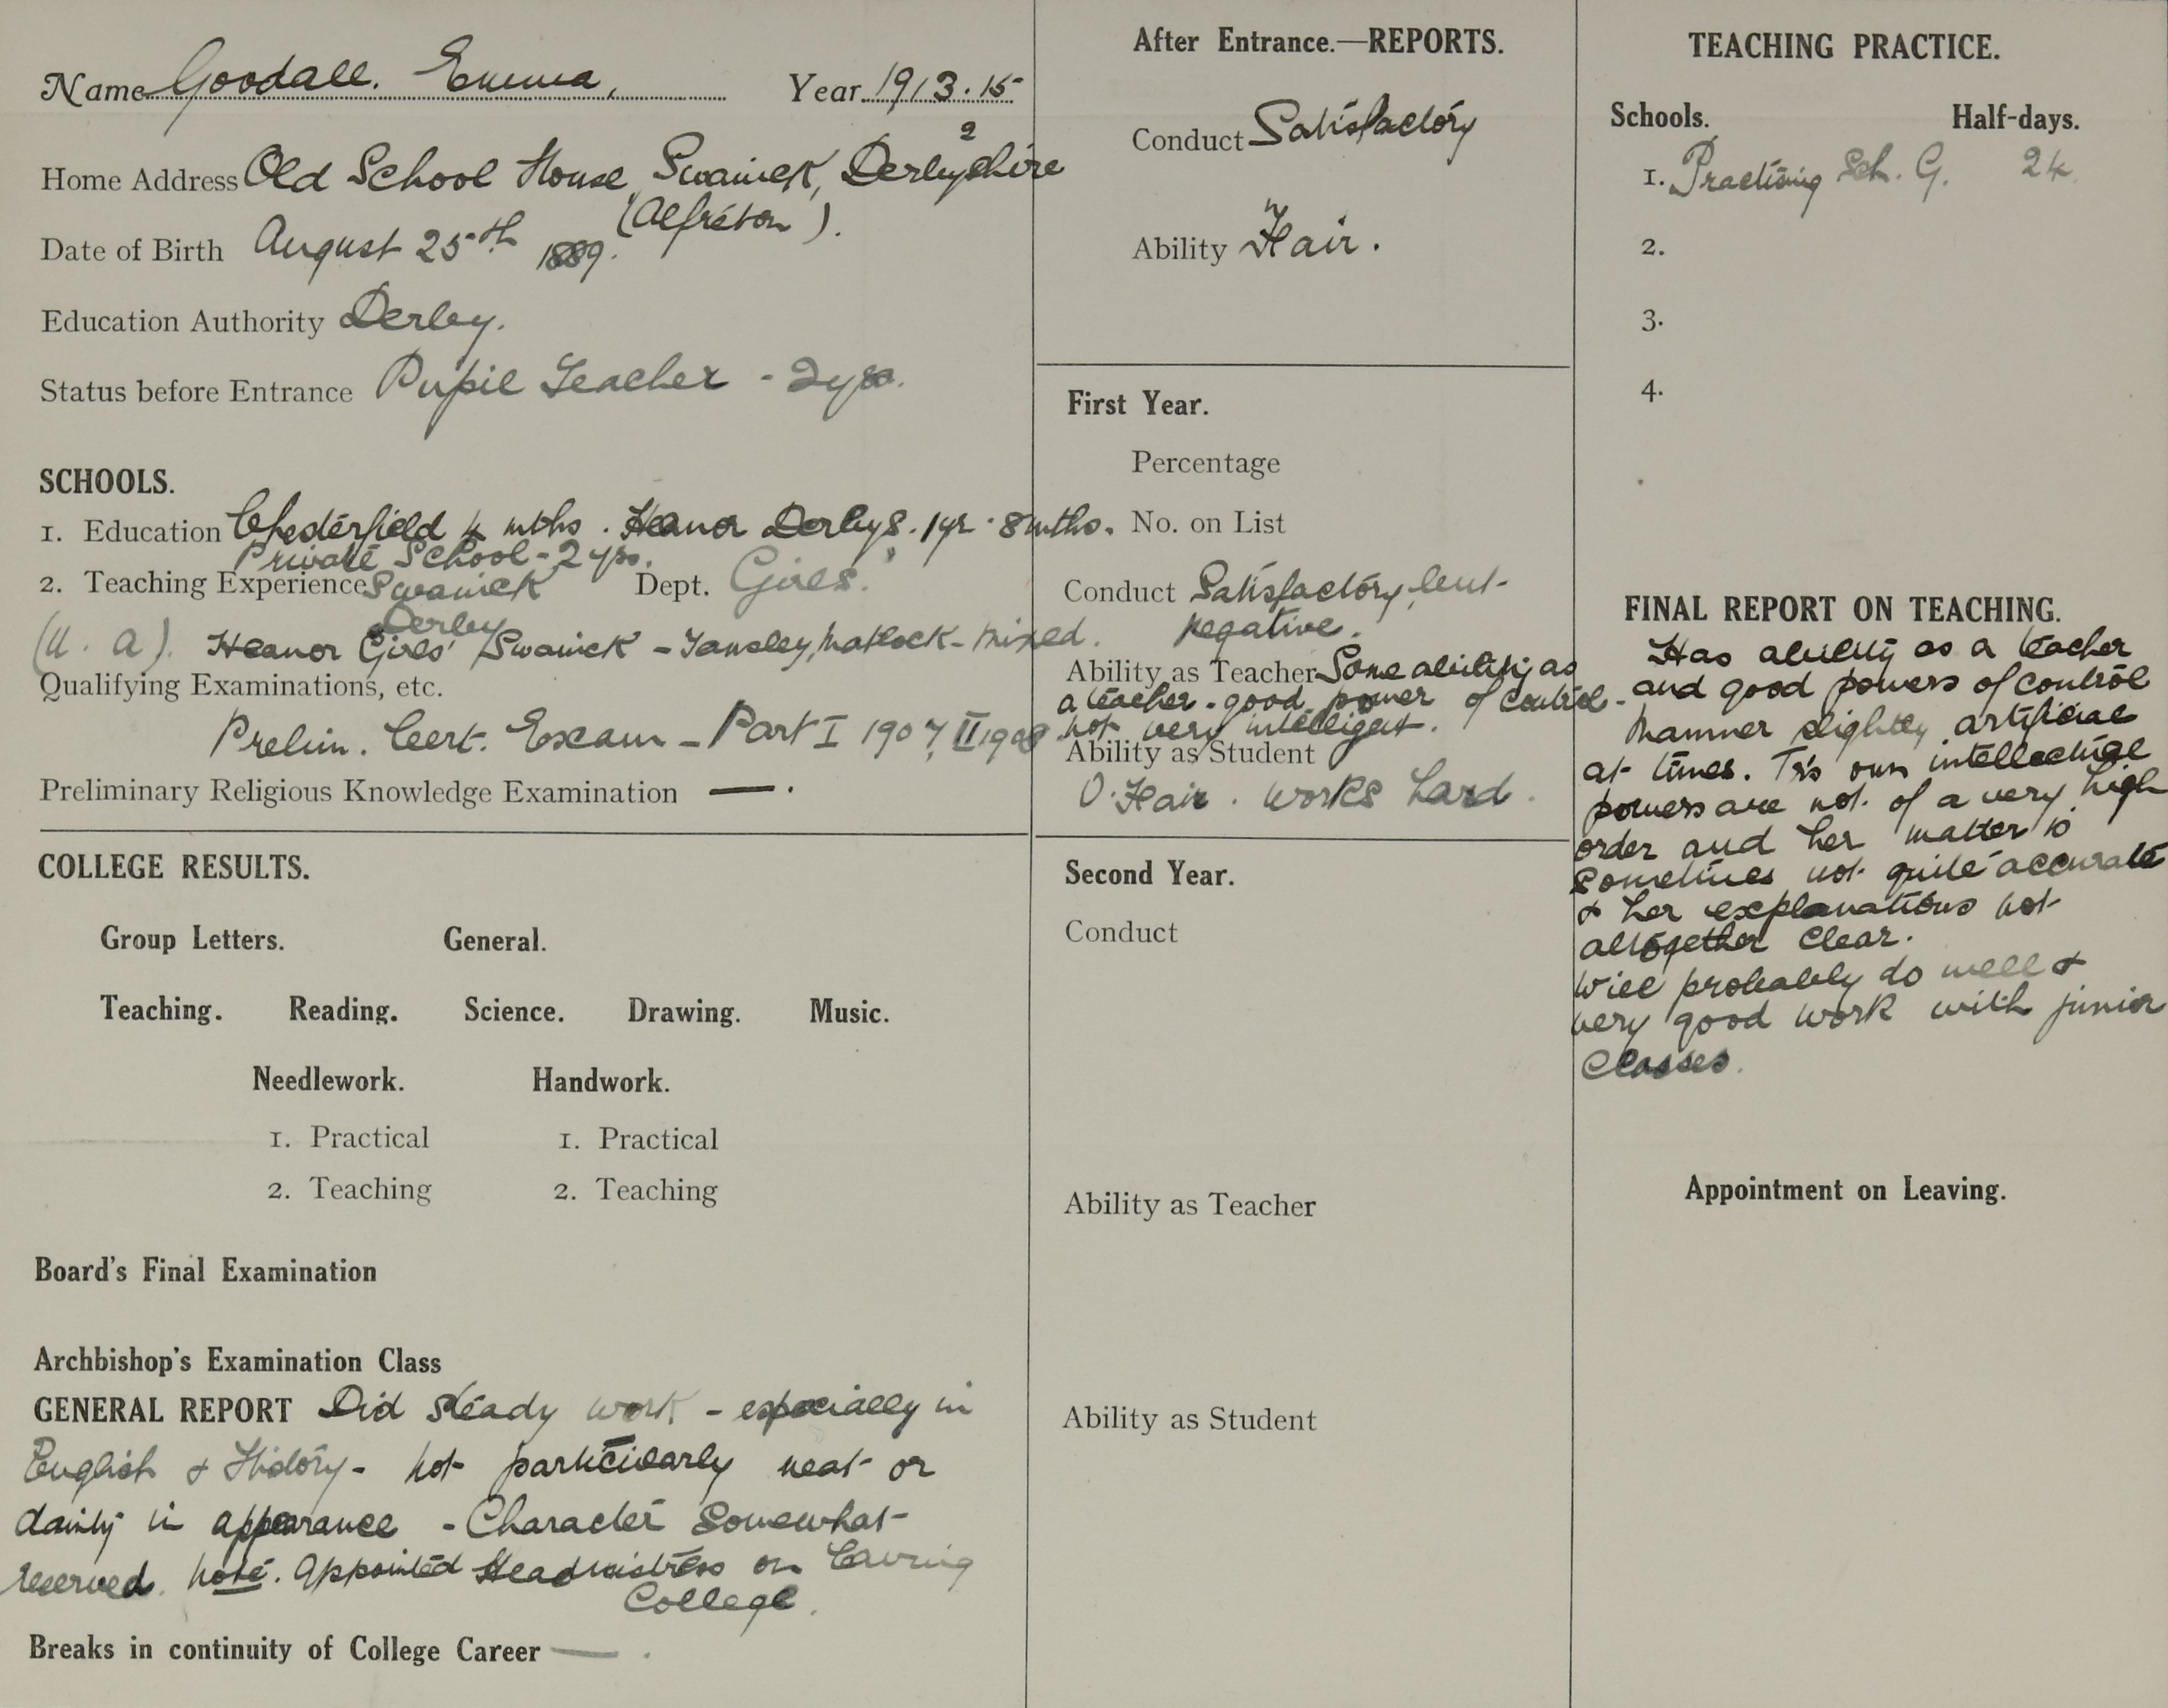 Name Goodall. Emma, Year 1913.15
Home Address Old School House, Swanick, Derbyshire
(Alfreton).
Date of Birth August 25th 1889.
Education Authority Derby.
Status before Entrance Pupil Teacher - 2 yrs.
SCHOOLS.
1. Education Chesterfield 4 mths. Heanor Derbys. 1yr. 8 mths.
Private School - 2 yrs.
2. Teaching Experience Swanick Dept. Girls.
Derby
(U. A). Heanor Girls' Swanick - Tansley, Matlock - Mixed.
Qualifying Examinations, etc.
Prelim. Cert. Exam - Part I 1907, II 1908
Preliminary Religious Knowledge Examination —.
COLLEGE RESULTS.
Group Letters. General.
Teaching. Reading. Science. Drawing. Music.
Needlework. Handwork.
1. Practical 1. Practical
2. Teaching 2. Teaching
Board's Final Examination
Archbishop's Examination Class
GENERAL REPORT Did steady work - especially in
English & History - not particularly neat or
dainty in appearance - Character somewhat
reserved. Note. Appointed Headmistress on leaving
College.
Breaks in continuity of College Career — .
After Entrance.—REPORTS.
Conduct Satisfactory
Ability Fair.
First Year.
Percentage
No. on List
Conduct Satisfactory, but
negative.
Ability as Teacher Some ability as
a teacher - good power of control -
not very intelligent.
Ability as Student
V. Fair. Works hard.
Second Year.
Conduct
Ability as Teacher
Ability as Student
TEACHING PRACTICE.
Schools. Half-days.
1. Practising Sch. G. 24
2.
3.
4.
FINAL REPORT ON TEACHING.
Has ability as a teacher
and good powers of control
Manner slightly artificial
at times. T's own intellectual
powers are not of a very high
order and her matter is
sometimes not quite accurate
& her explanations not
altogether clear.
Will probably do well &
very good work with junior
Classes.
Appointment on Leaving.